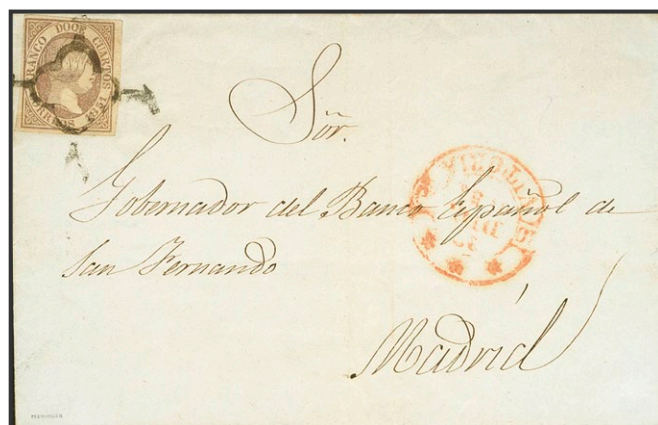 FRANCO DOCE CUARTOS
CORREOS 1851
Sõr.
Gobernador del Banco Español de
San Fernando
Madrid